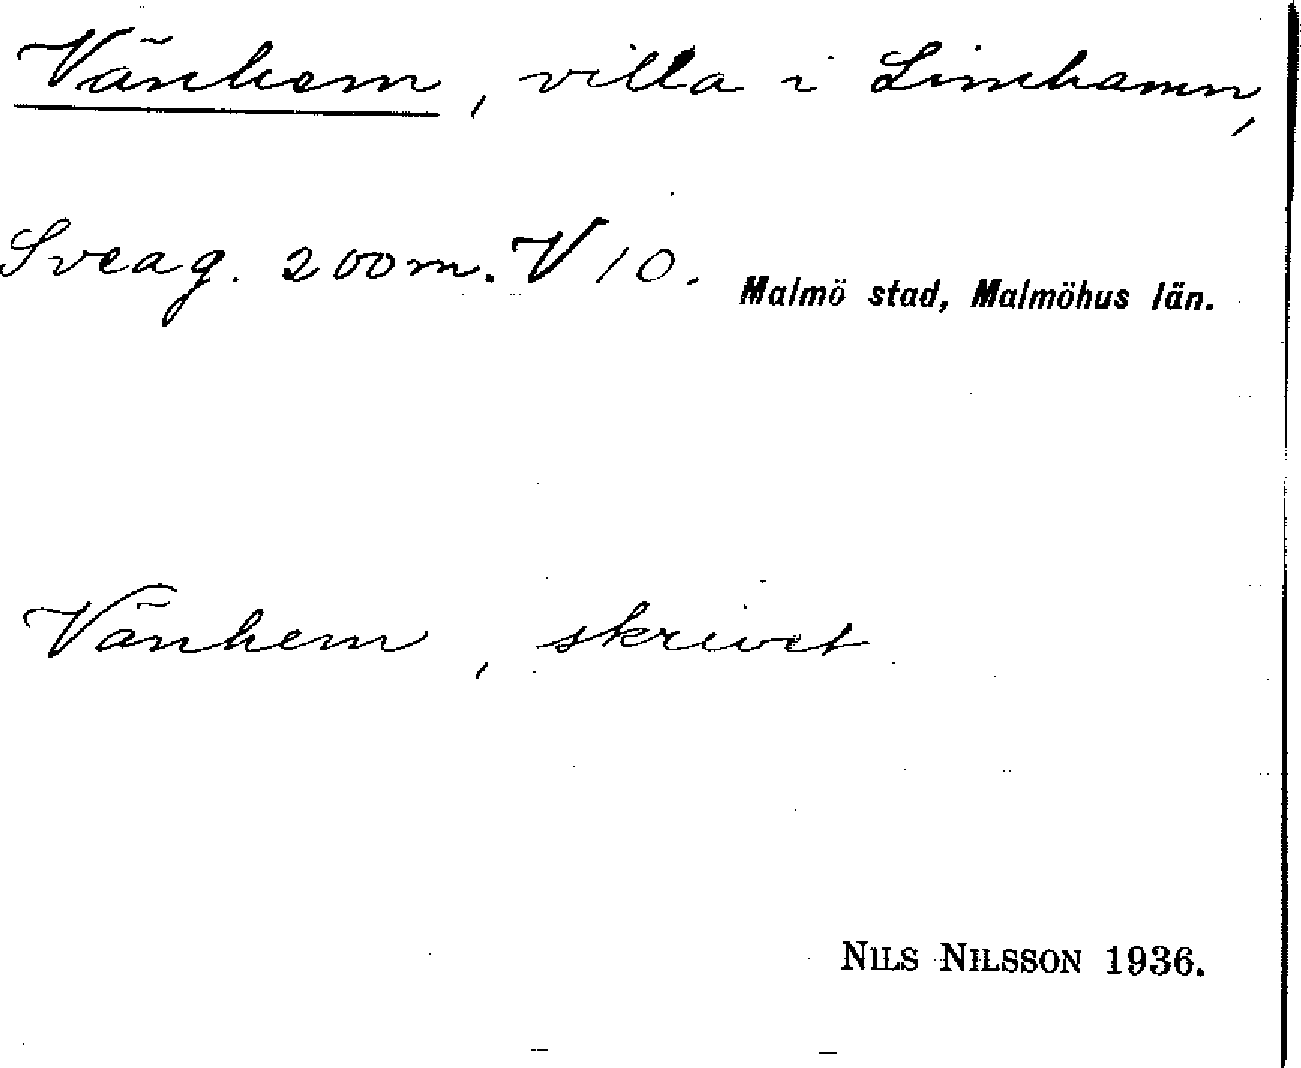 Vänhem, villa i Limhamn,
Sveag. 200 m. V 10.
Malmö stad, Malmöhus län.
Vänhem, skrivet
NILS NILSSON 1936.